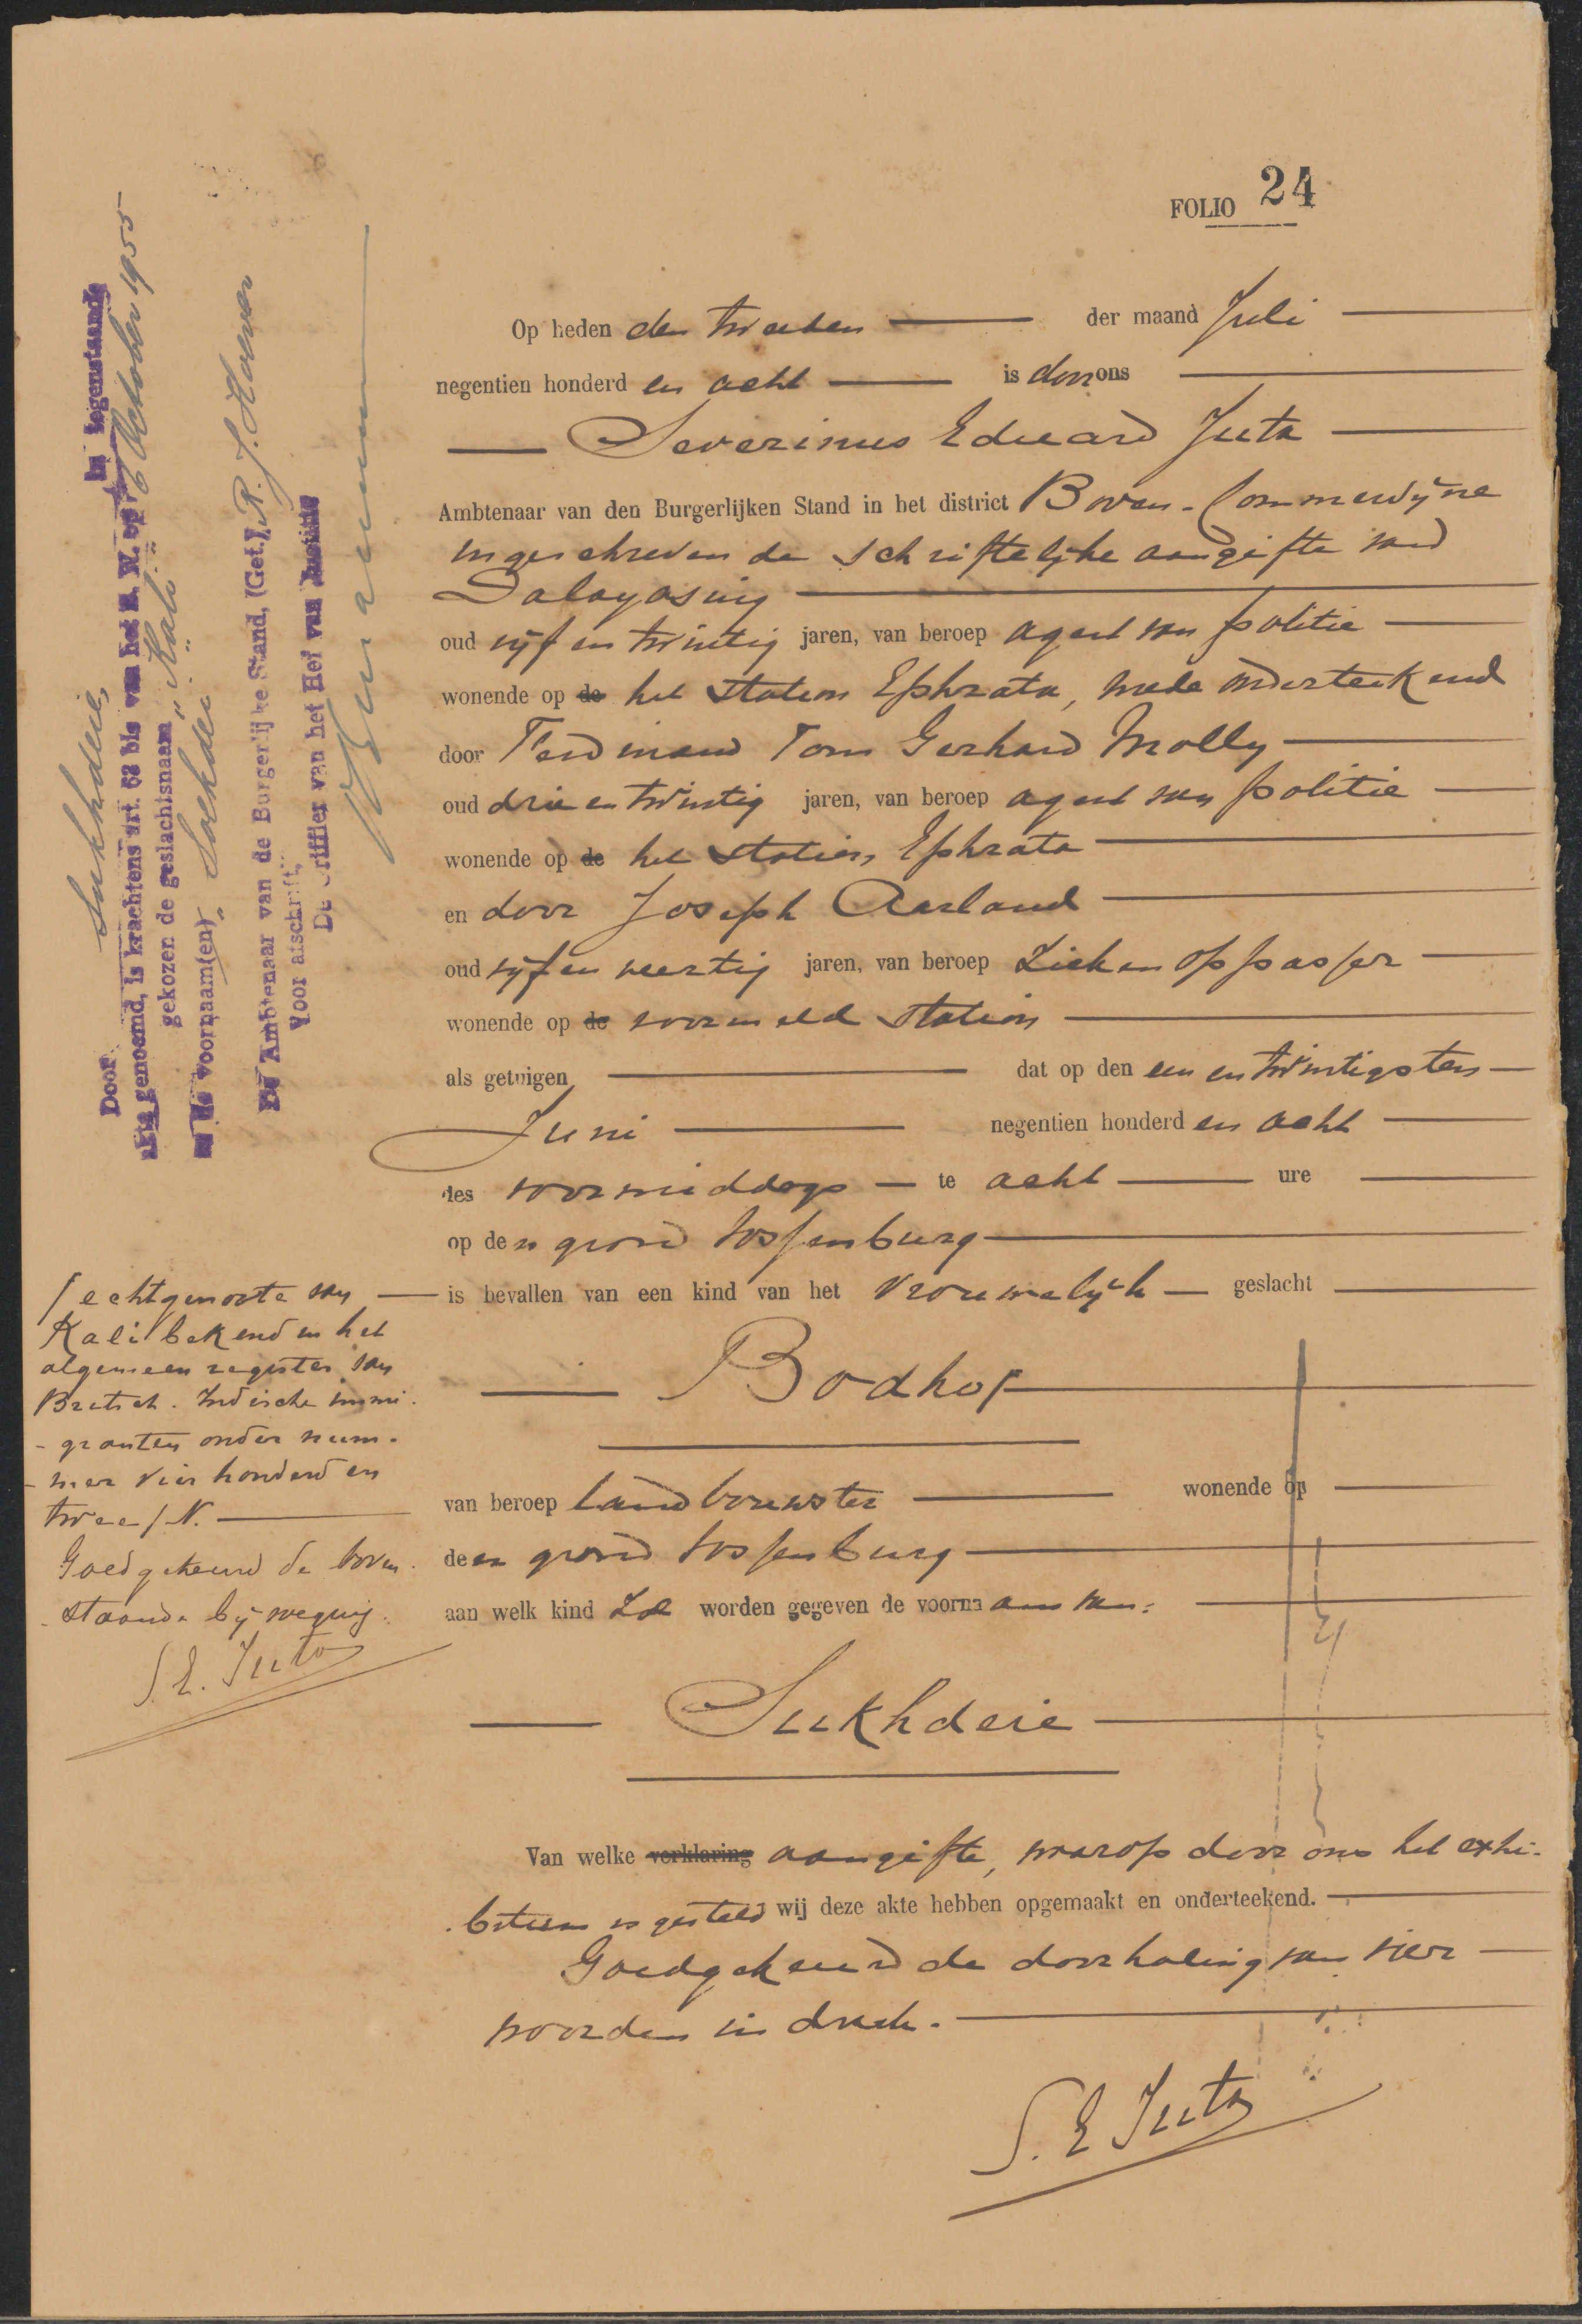 FOLIO 24
Op heden den tweeden der maand Juli
negentien honderd en acht is door ons
Severinus Eduard Juta
Ambtenaar van den Burgerlijken Stand in het district Boven-Commewijne
ingeschreven de schriftelijke aangifte van
Dalayasing
oud vijf en twintig jaren, van beroep agent van politie
wonende op de het station Ephrata, mede onderteekend
door Ferdinand Tom Gerhard Molly
oud drie en twintig jaren, van beroep agent van politie
wonende op de het station Ephrata
en door Joseph Aarland
oud vijf en veertig jaren, van beroep Ziekenoppasser
wonende op de voormeld station
als getuigen dat op den een en twintigsten
Juni negentien honderd en acht
des voormiddags te acht ure
op den grond Vossenburg
is bevallen van een kind van het vrouwelijk geslacht
Bodhoſ
van beroep landbouwster wonende op
den grond Vossenburg
aan welk kind zal worden gegeven de voornaam van:
Sukhdeie
Van welke verklaring aangifte, waarop door ons het exhi-
bitum is gesteld wij deze akte hebben opgemaakt en onderteekend.
Goedgekeurd de doorhaling van vier
woorden in druk.
S. E Juta
ſ echtgenoote van
Kali bekend in het
algemeen register van
Britsch. Indische immi-
-granten onder num-
-mer vier honderd en
twee/N.
Goedgekeurd de boven-
staande bijvoeging.
S. E. Juta
Door Sukhdeie,
in tegenstaande
akte genoemd, is krachtens art. 63 bis van het B. W. op 6 October 1955
gekozen de geslachtsnaam "Kali"
en de voornaam(en) "Soekdei"
De Ambtenaar van de Burgerlijke Stand, (Get.) R. J.
Voor afschrift,
De Griffier van het Hof van Justitie